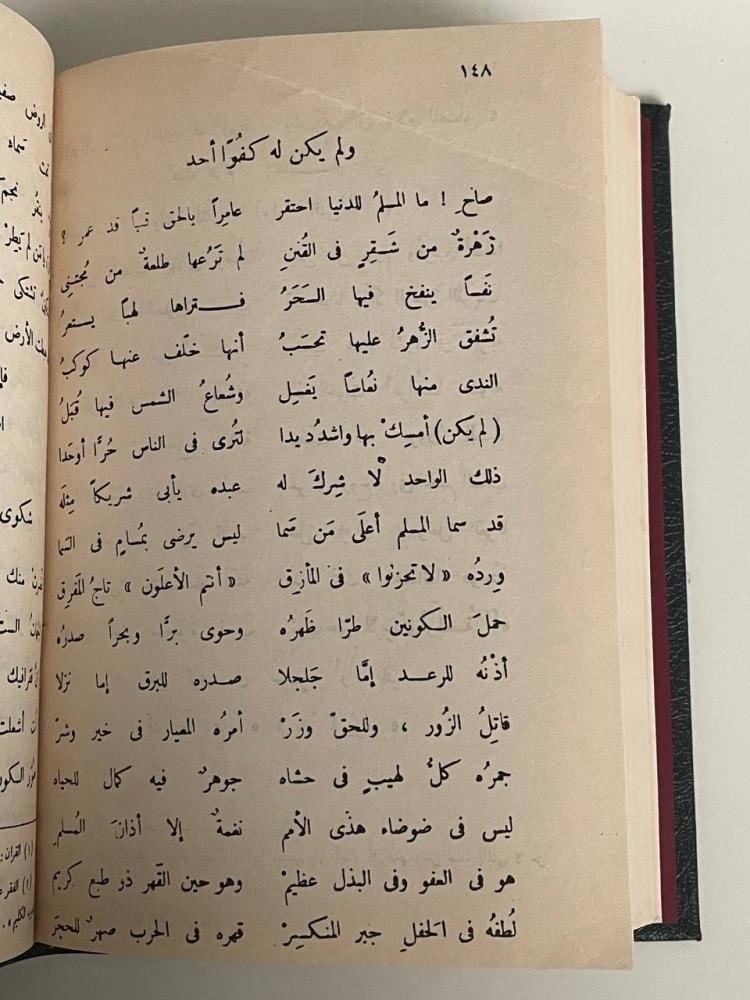 ١٤٨
ولم يكن له كفُوًا أحد
صاحِ ! ما المسلمُ للدنيا احتقر عامِراً بالحق قلباً قد عمر ؟
زَهْرةٌ من شَقِرٍ فى القُنَنِ لم تَرُعها طلعةٌ من مُجتنِى
نَفَساً ينفخ فيها السَحَرُ فتراها لهباً يستعرُ
تُشفق الزُّهرُ عليها تحسَبُ أنها خلّف عنها كوكبُ
الندى منها نعُاساً يَغسِل وشُعاعُ الشمس فيها قُبَلُ
(لم يكن) أمسِكْ بها واشدُد يدا لتُرى فى الناس حُرًّا أوحَدا
ذلك الواحد لا شِركَ له عبده يأبى شريكاً مِثلَه
قد سما المسلم أعلَى مَن سَما ليس يرضى بمُسامٍ فى السَّما
وِردُه « لا تحزنوا » فى المأزِق « أنتم الأعلَون » تاجُ المَفرِق
حملَ الكونين طرًّا ظَهرُه وحوى برًّا وبحراً صدرُه
أذْنُه للرعد إمَّا جَلجلا صدره للبرق إما نزلا
قاتِلُ الزُور ، وللحقّ وزَرْ أمرُه المعيار فى خير وشرْ
جمرُه كلُّ لهيبٍ فى حشاه جوهرٌ فيه كمال للحياه
ليس فى ضوضاء هذى الأمم نغمةٌ إلا أذانَ المُسلمِ
هو فى العفو وفى البذل عظيمْ وهو حين القَهر ذو طبع كريم
لُطفُه فى الحَفلِ جبر المنكسِرْ قهره فى الحرب صهرٌ للحجَر
الروض
سماه
نجم
الأرض
شكوى
منك
أشعلت
(١) القرآن :
(٢) الفقر